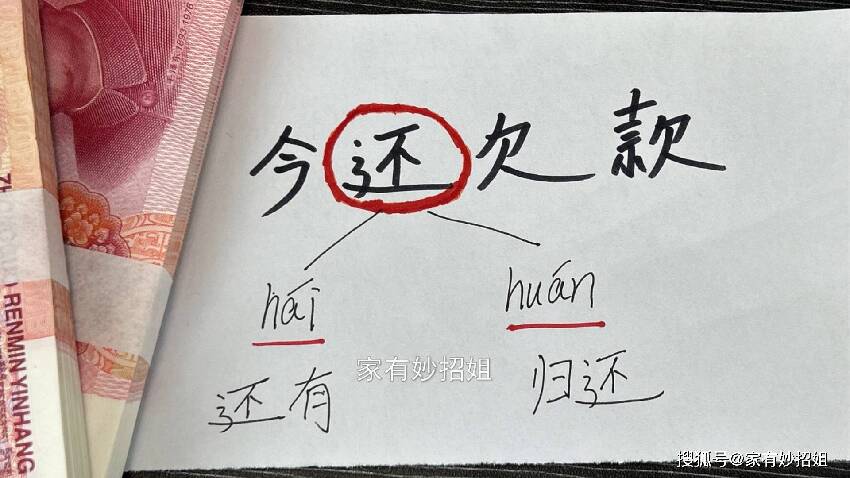 今还欠款
hái huán
还有 归还
家有妙招姐
搜狐号@家有妙招姐
RENMIN YINHANG